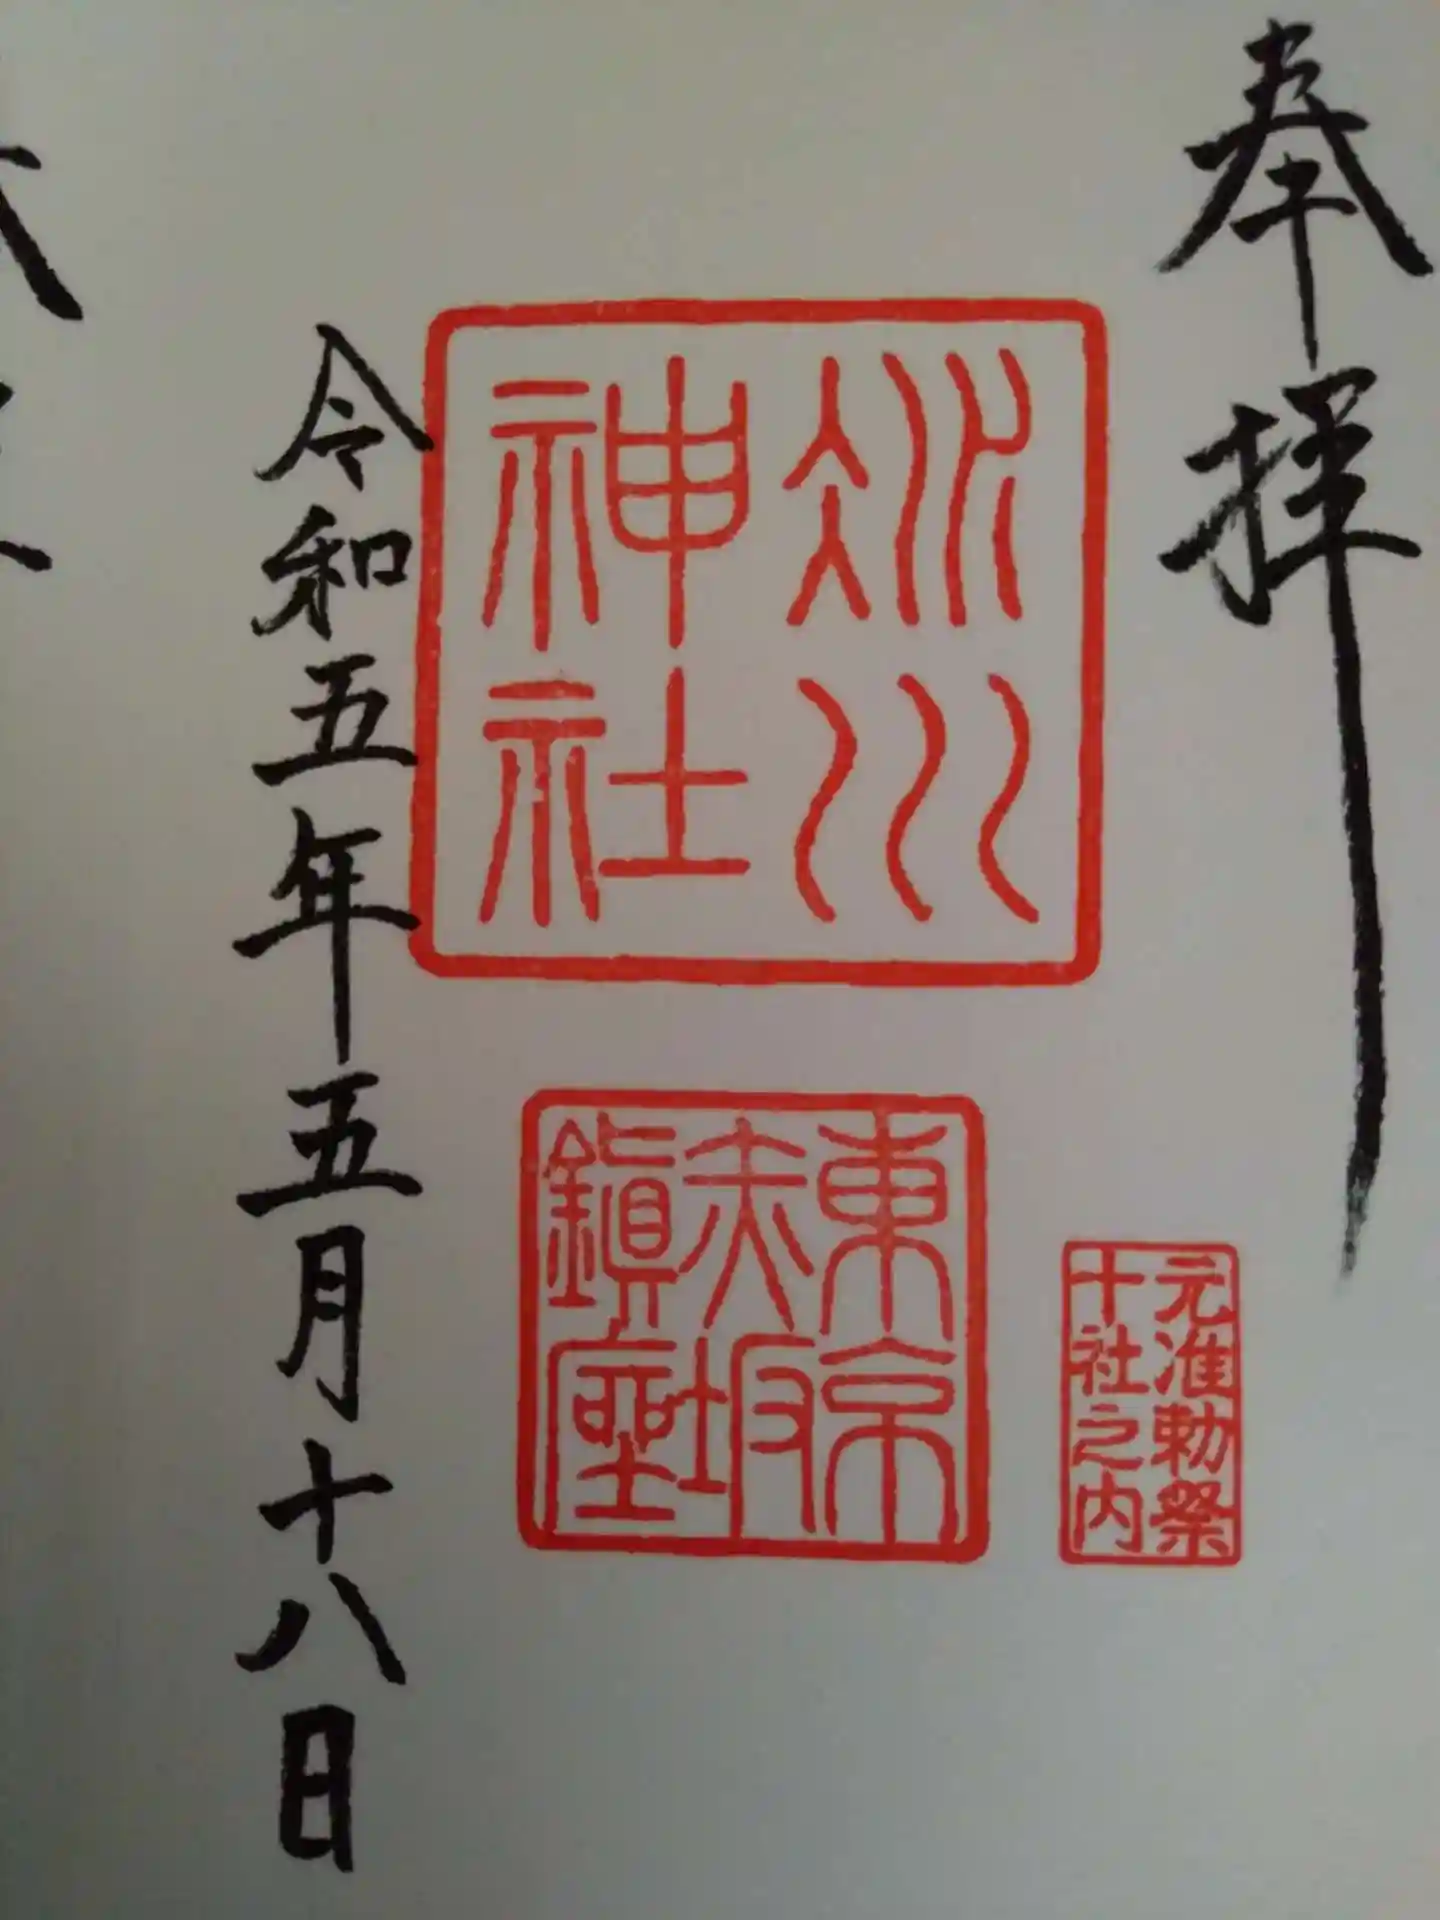 奉拝
氷川
神社
元准勅祭
十社之内
東京
赤坂
鎮座
令和五年五月十八日